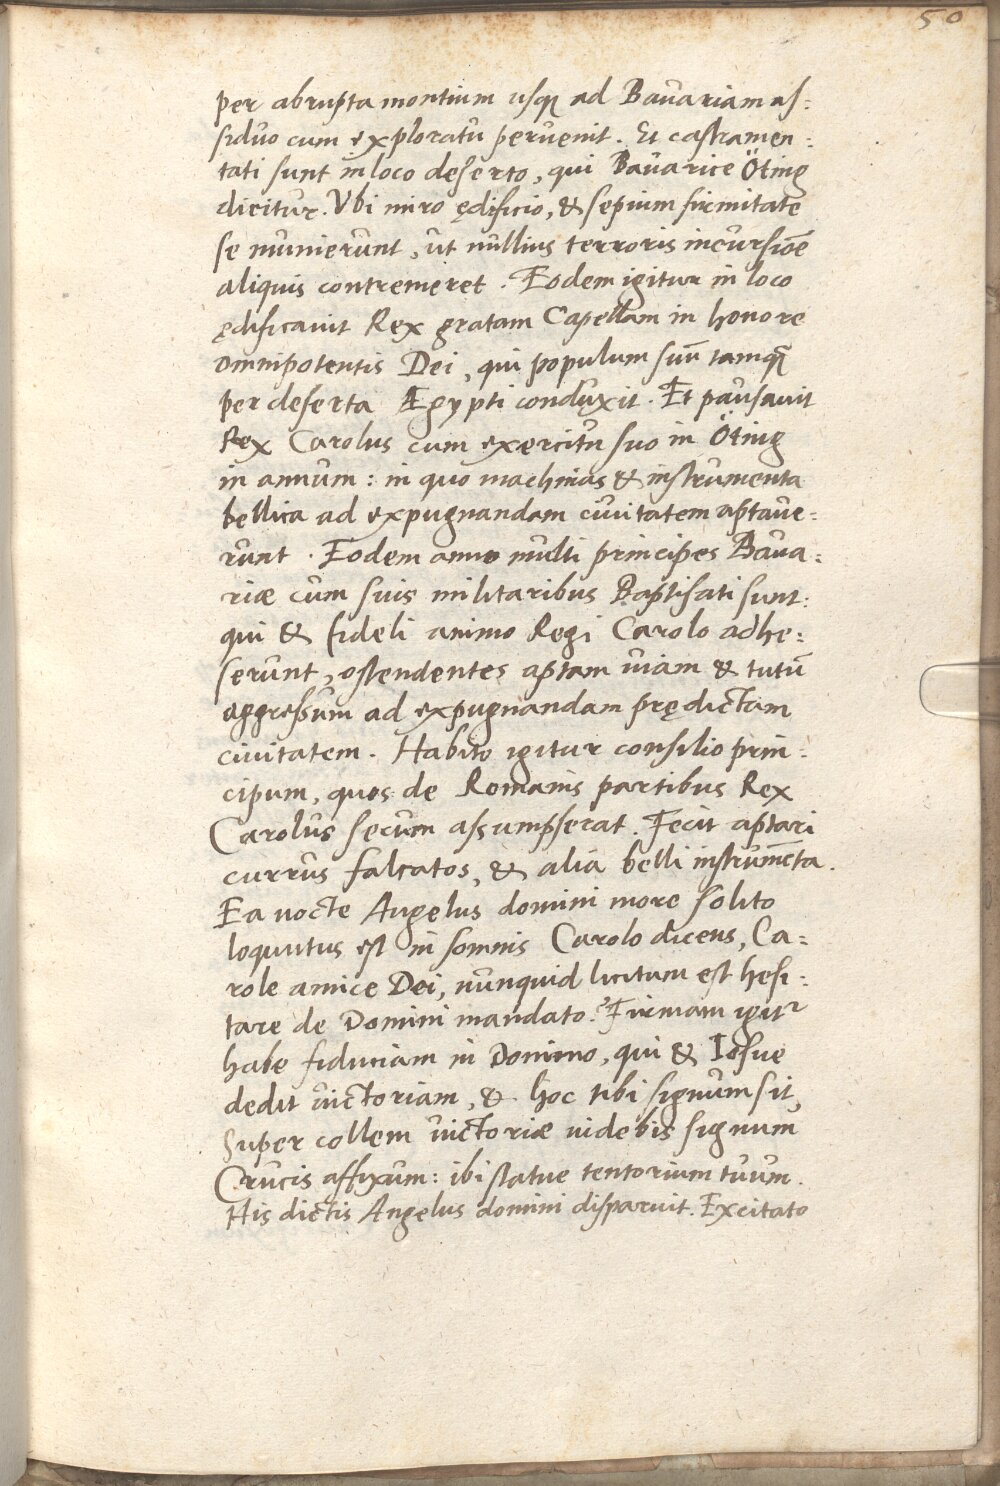 50
per abrupta montium usq₃ ad Bauariam as=
siduo cum exploratu peruenit. Et castramen=
tati sunt in loco deserto, qui Bauarice Öting
dicitur. Vbi miro ędificio, & sepium firmitate
se munierunt, ut nullius terroris incursiōe
aliquis contremeret. Eodem igitur in loco
ędificauit Rex gratam Capellam in honore
omnipotentis Dei, qui populum suū tamq̄
per deserta Ægypti conduxit. Et pausauit
Rex Carolus cum exercitu suo in Öting
in annum: in quo machinas & instrumenta
bellica ad expugnandam ciuitatem aptaue=
runt. Eodem anno multi principes Baua=
riæ cum suis militaribus Baptisati sunt:
qui & fideli animo Regi Carolo adhe=
serunt, ostendentes aptam uiam & tutū
aggressum ad expugnandam prędictam
ciuitatem. Habito igitur consilio prin=
cipum, quos de Romanis partibus Rex
Carolus secum assumpserat. Fecit aptari
currus falcatos, & alia belli instrumēta.
Ea nocte Angelus domini more solito
loquutus est in somnis Carolo dicens, Ca=
role amice Dei, nunquid licitum est hesi=
tare de Domini mandato? Firmam igit᷑
habe fiduciam in Domino, qui & Iosue
dedit uictoriam, & hoc tibi signum sit,
Super collem uictoriæ uidebis signum
Crucis affixum: ibi statue tentorium tuum.
His dictis Angelus domini disparuit. Excitato